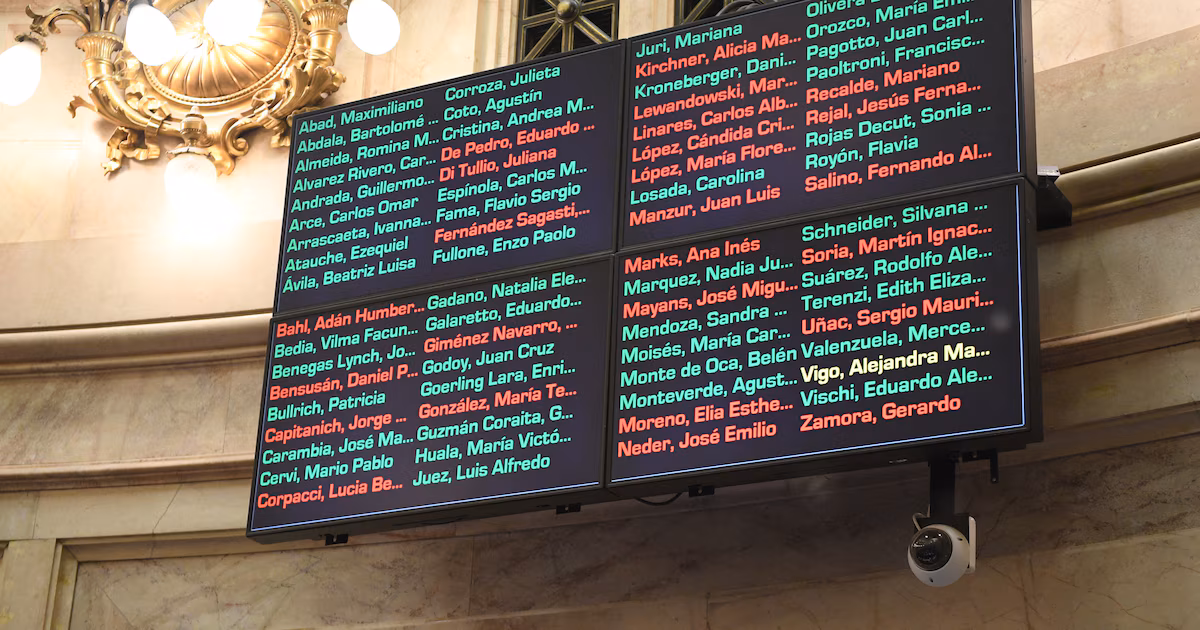 Abad, Maximiliano
Abdala, Bartolomé ...
Almeida, Romina M...
Alvarez Rivero, Car...
Andrada, Guillermo...
Arce, Carlos Omar
Arrascaeta, Ivanna...
Atauche, Ezequiel
Ávila, Beatriz Luisa
Corroza, Julieta
Coto, Agustín
Cristina, Andrea M...
De Pedro, Eduardo ...
Di Tullio, Juliana
Espínola, Carlos M...
Fama, Flavio Sergio
Fernández Sagasti,...
Fullone, Enzo Paolo
Juri, Mariana
Kirchner, Alicia Ma...
Kroneberger, Dani...
Lewandowski, Mar...
Linares, Carlos Alb...
López, Cándida Cri...
López, María Flore...
Losada, Carolina
Manzur, Juan Luis
Olivera
Orozco, María Emi...
Pagotto, Juan Carl...
Paoltroni, Francisc...
Recalde, Mariano
Rejal, Jesús Ferna...
Rojas Decut, Sonia ...
Royón, Flavia
Salino, Fernando Al...
Bahl, Adán Humber...
Bedia, Vilma Facun...
Benegas Lynch, Jo...
Bensusán, Daniel P...
Bullrich, Patricia
Capitanich, Jorge ...
Carambia, José Ma...
Cervi, Mario Pablo
Corpacci, Lucia Be...
Gadano, Natalia Ele...
Galaretto, Eduardo...
Giménez Navarro, ...
Godoy, Juan Cruz
Goerling Lara, Enri...
González, María Te...
Guzmán Coraita, G...
Huala, María Victó...
Juez, Luis Alfredo
Marks, Ana Inés
Marquez, Nadia Ju...
Mayans, José Migu...
Mendoza, Sandra ...
Moisés, María Car...
Monte de Oca, Belén
Monteverde, Agust...
Moreno, Elia Esthe...
Neder, José Emilio
Schneider, Silvana ...
Soria, Martín Ignac...
Suárez, Rodolfo Ale...
Terenzi, Edith Eliza...
Uñac, Sergio Mauri...
Valenzuela, Merce...
Vigo, Alejandra Ma...
Vischi, Eduardo Ale...
Zamora, Gerardo